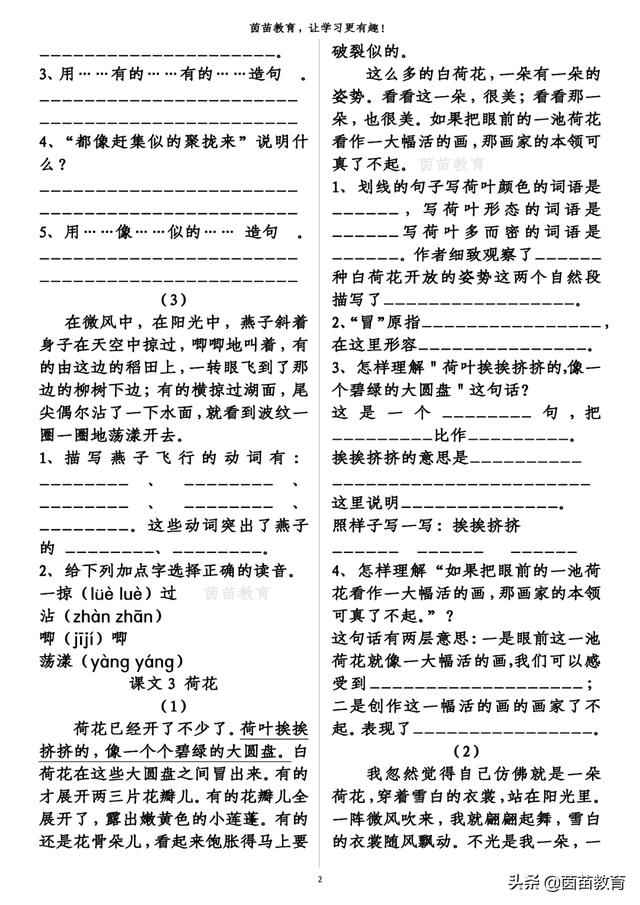 茵苗教育，让学习更有趣！
________________________。
3、用……有的……有的……造句 。
________________________
________________________
4、“都像赶集似的聚拢来”说明什
么？
________________________
________________________
5、用……像……似的…… 造句 。
________________________
________________________
（3）
在微风中，在阳光中，燕子斜着
身子在天空中掠过，唧唧地叫着，有
的由这边的稻田上，一转眼飞到了那
边的柳树下边；有的横掠过湖面，尾
尖偶尔沾了一下水面，就看到波纹一
圈一圈地荡漾开去。
1、描写燕子飞行的动词有：
________、________、
________、________、
________。这些动词突出了燕子
的 ________、________。
2、给下列加点字选择正确的读音。
一掠（lüè luè）过
茵苗教育
沾（zhàn zhān）
唧（jījí）唧
荡漾（yàng yáng）
课文 3 荷花
（1）
荷花已经开了不少了。荷叶挨挨
挤挤的，像一个个碧绿的大圆盘。白
荷花在这些大圆盘之间冒出来。有的
才展开两三片花瓣儿。有的花瓣儿全
展开了，露出嫩黄色的小莲蓬。有的
还是花骨朵儿，看起来饱胀得马上要
破裂似的。
这么多的白荷花，一朵有一朵的
姿势。看看这一朵，很美；看看那一
朵，也很美。如果把眼前的一池荷花
看作一大幅活的画，那画家的本领可
真了不起。
茵苗教育
1、划线的句子写荷叶颜色的词语是
______，写荷叶形态的词语是
______写荷叶多而密的词语是
______。作者细致观察了______
种白荷花开放的姿势这两个自然段
描写了__________________。
2、“冒”原指__________________，
在这里形容________________。
3、怎样理解＂荷叶挨挨挤挤的,像一
个碧绿的大圆盘＂这句话?
这是一个________句,把
_________比作_________。
挨挨挤挤的意思是___________
________________________
这里说明_______________。
照样子写一写：挨挨挤挤
______ ______ ______
4、怎样理解“如果把眼前的一池荷
花看作一大幅活的画，那画家的本领
可真了不起。”？
这句话有两层意思：一是眼前这一池
荷花就像一大幅活的画,我们可以感
受到____________________；
二是创作这一幅活的画的画家了不
起。表现了_________________。
（2）
我忽然觉得自己仿佛就是一朵
荷花，穿着雪白的衣裳，站在阳光里。
一阵微风吹来，我就翩翩起舞，雪白
的衣裳随风飘动。不光是我一朵，一
2
头条 @茵苗教育